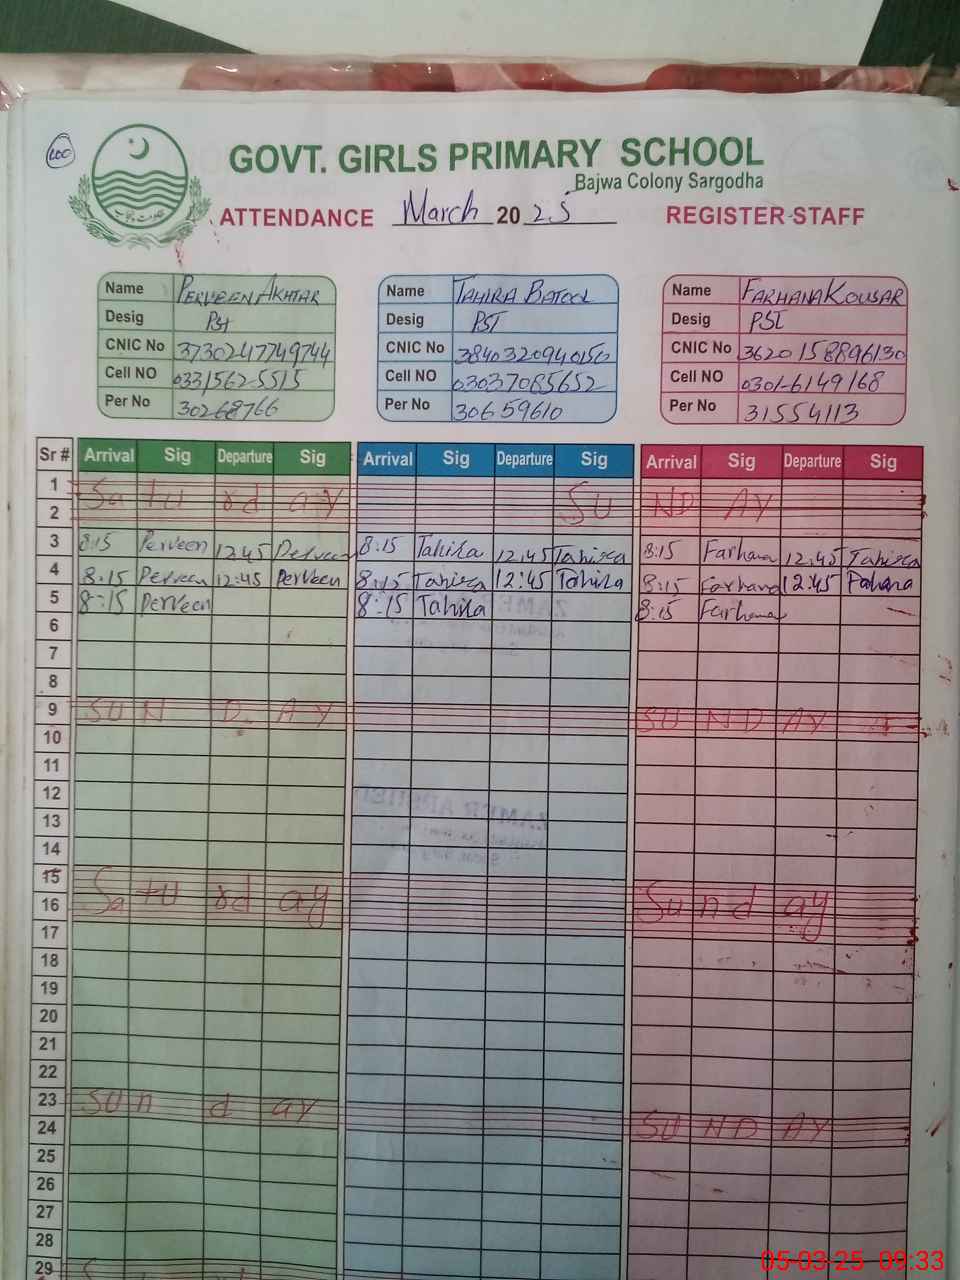 100
GOVT. GIRLS PRIMARY SCHOOL
Bajwa Colony Sargodha
ATTENDANCE March 20 25 REGISTER STAFF
Name PERVEEN AKHTAR Name TAHIRA BATOOL Name FARHANA KOUSAR
Desig Pst Desig PST Desig PST
CNIC No 3730247749744 CNIC No 3840320940150 CNIC No 3620158896130
Cell NO 03315625515 Cell NO 03037085652 Cell NO 0301-6149168
Per No 30268766 Per No 30659610 Per No 31554113
Sr # Arrival Sig Departure Sig Arrival Sig Departure Sig Arrival Sig Departure Sig
1 Sa tu rd ay SU ND AY
2
3 8:15 Perveen 12:45 Perveen 8:15 Tahira 12:45 Tahira 8:15 Farhana 12:45 Tahira
4 8:15 Perveen 12:45 Perveen 8:15 Tahira 12:45 Tahira 8:15 Farhana 12:45 Fahana
5 8:15 Perveen 8:15 Tahira 8:15 Farhana
6
7
8
9 SU N D AY SU ND AY
10
11
12
13
14
15
16 Sa tu rd ay Su n d ay
17
18
19
20
21
22
23 SU n d ay
24 SU ND AY
25
26
27
28
29
05-03-25 09:33